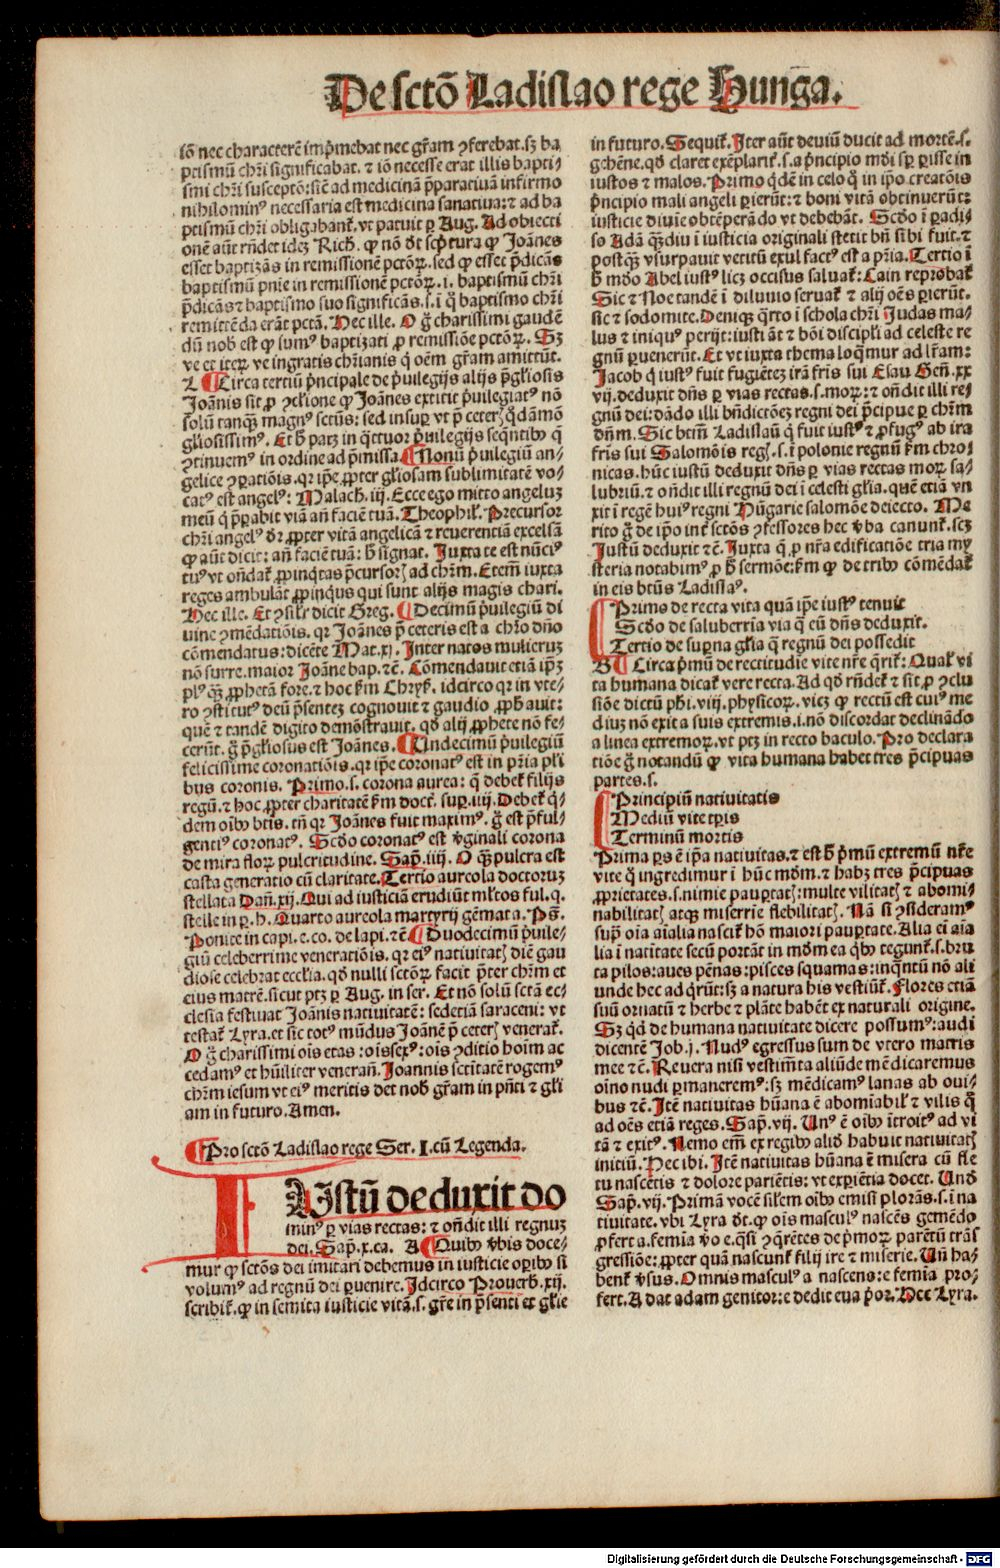 De sctõ Ladislao rege Hungã.
iõ nec characterẽ imp̃mebat nec gr̃am ꝯferebat. sꝫ ba
ptismũ chr̃i significabat. ⁊ iõ necesse erat illis bapti⸗
smi chr̃i susceptõ: siẽ ad medicinã p̃paratiuã infirmo
nihilominꝰ necessaria est medicina sanatiua: ⁊ ad ba
ptismũ chr̃i obligabanť. vt patuit ꝑ Aug. Ad obiecti
onẽ aũt rñdet ideꝫ Rich. ꝙ nõ dt̃ scp̃tura ꝙ Joãnes
esset baptizãs in remissionẽ pctõꝝ. sed ꝙ esset p̃dicãs
baptismũ pnĩe in remissionẽ pctõꝝ. i. baptismũ chr̃i
p̃dicãs ⁊ baptismo suo significãs. s. i q̃ baptismo chr̃i
remittẽda erãt pctã. Hec ille. O g̃ charissimi gaudẽ
dũ nob est ꝙ sumꝰ baptizati ꝓ remissiõe pctõꝝ. Sꝫ
ve et iteꝝ ve ingratis chr̃ianis q̃ oẽm gr̃am amittũt.
L ¶ Circa tertiũ p̃ncipale de p̃uilegijs alijs p̃gl̃iosis
Joãnis sit ꝓ ꝯcl̃ione ꝙ Joãnes extitit p̃uilegiatꝰ nõ
solũ tanq̃ȝ magnꝰ sctũs: sed insuꝑ vt p̃ ceterꝭ q̃dãmõ
gl̃iosissimꝰ. Et h̃ patꝫ in q̃ttuoꝛ p̃uilegijs seq̃ntibꝰ q̃
ꝯtinuemꝰ in ordine ad p̃missa. ¶ Nonũ p̃uilegiũ an⸗
gelice ꝯꝑatiõis. qꝛ ip̃e ꝓpter gl̃iosam sublimitatẽ vo⸗
catꝰ est angelꝰ: Malach. iij. Ecce ego mitto angeluꝫ
meũ q̃ p̃ꝑabit viã añ faciẽ tuã. Theophiť. Precursor
chr̃i angelꝰ dꝛ ꝓpter vitã angelicã ⁊ reuerentiã excelsã
ꝙ aũt dicit: añ faciẽ tuã: h̃ signat. Juxta te est nũciꝰ
tuꝰ vt oñdať ꝓpinq̃tas p̃cursorꝭ ad chr̃m. Etem̃ iuxta
reges ambulãt ꝓpinq̃us qui sunt alijs magis chari.
Hec ille. Et ꝯsilr̃ dicit Greg. ¶ Decimũ p̃uilegiũ di
uine ꝯmẽdatiõis. qꝛ Joãnes p̃ ceteris est a chr̃o dño
cõmendatus: dicẽte Mat. xj. Inter natos mulieruꝫ
nõ surre. maior Joãne bap. ⁊ẽ. Cõmendauit etiã ip̃ꝫ
plꝰ q̃ȝ ꝓphetã fore. ⁊ hoc ẽm Chryẽ. idcirco qꝛ in vte⸗
ro ꝯstitutꝰ deũ p̃sentez cognouit ⁊ gaudio ꝓphauit:
quẽ ⁊ tandẽ digito demõstrauit. qđ alij ꝓphete nõ fe⸗
cerũt. g̃ p̃gl̃iosus est Joãnes. ¶ Undecimũ p̃uilegiũ
felicissime coronatiõis. qꝛ ip̃e coronatꝰ est in pr̃ia pl̃i
bus coronis. Primo. s. corona aurea: q̃ debeť filijs
regũ. ⁊ hoc ꝓpter charitatẽ ẽm doct̃. suꝑ. iiij. Debeť q̃⸗
dem oĩbꝰ btĩs. tñ qꝛ Joãnes fuit maximꝰ. g̃ est p̃ful⸗
gentiꝰ coronatꝰ. Scďo coronatꝰ est v̓ginali corona
de mira floꝝ pulcritudine. Sap. iiij. O q̃ȝ pulcra est
casta generatio cũ claritate. Tertio aureola doctoruꝫ
stellata Dañ. xij. Qui ad iusticiã erudiũt ml̃tos ful. q.
stelle in ꝑ. h. Quarto aureola martyrij gẽmata. Ps̃.
Ponite in capi. e. co. de lapi. ⁊ẽ. ¶ Duodecimũ p̃uile⸗
giũ celeberrime veneratiõis. qꝛ eiꝰ natiuitatꝭ diẽ gau
diose celebrat eccl̃ia. qđ nulli sctõꝝ facit p̃ter chr̃m et
eius matrẽ. sicut ptꝫ ꝑ Aug. in ser. Et nõ solũ sctã ec⸗
clesia festiuat Joãnis natiuitatẽ: sed etiã saraceni: vt
testať Lyra. et sic totꝰ mũdus Joãnẽ p̃ ceterꝭ venerať.
O g̃ charissimi oĩs etas: oĩs sexꝰ: oĩs ꝯditio hoĩm ac
cedamꝰ et hũiliter venerañ. Joannis sctĩtatẽ rogemꝰ
chr̃m iesum vt eiꝰ meritis det nob gr̃am in pñti ⁊ gl̃i
am in futuro. Amen.
¶ Pro sctõ Ladislao rege Ser. I. cũ Legenda.
IUstũ deduxit do
minꝰ ꝑ vias rectas: ⁊ oñdit illi regnuꝫ
dei. Sap. x. ca. A ¶ Quibꝰ v̓bis doce⸗
mur ꝙ sctõs dei imitari debemus in iusticie oꝑibꝰ si
volumꝰ ad regnũ dei ꝑuenire. Idcirco Prouerb. xij.
scribiť. ꝙ in semita iusticie vitã. s. gr̃e in p̃senti et gl̃ie
in futuro. Sequiť. Iter aũt deuiũ ducit ad mortẽ. s.
gehẽne. qđ claret exẽplariť. s. a p̃ncipio mõi sꝑ ꝑisse in
iustos ⁊ malos. Primo q̃dẽ in celo q̃ in ip̃o creatõis
p̃ncipio mali angeli ꝑierũt: ⁊ boni vitã obtinuerũt:
iusticie diuĩe obtẽperãdo vt debebãt. Scďo i ꝑadi⸗
so Adã q̃ȝdiu i iusticia originali stetit bñ sibi fuit. ⁊
postq̃ȝ vsurpauit vetitũ exul factꝰ est a pr̃ia. Tertio ĩ
h̃ mõo Abel iustꝰ licꝫ occisus saluať: Cain reprobať
Sic ⁊ Noe tandẽ i diluuio seruať ⁊ alij oẽs ꝑierũt.
sic ⁊ sodomite. Deniqꝫ q̃rto i schola chr̃i Judas ma⸗
lus ⁊ iniquꝰ perijt: iusti ãt ⁊ bõi discipl̃i ad celeste re
gnũ ꝑuenerũt. Et vt iuxta thema loq̃mur ad lr̃am:
Jacob q̃ iustꝰ fuit fugiẽteꝫ irã fr̃is sui Esau Geñ. xx
vij. deduxit dñs ꝑ vias rectas. s. moꝝ: ⁊ oñdit illi re⸗
gnũ dei: dãdo illi bñdictõeꝫ regni dei p̃cipue ꝑ chr̃m
dñm. Sic btm̃ Ladislaũ q̃ fuit iustꝰ ⁊ ꝓfugꝰ ab ira
fr̃is sui Salomõis regꝭ. s. i polonie regnũ ẽm chro⸗
nicas. hũc iustũ deduxit dñs ꝑ vias rectas moꝝ sa⸗
lubriũ. ⁊ oñdit illi regnũ dei i celesti gl̃ia. quẽ etiã vn
xit i regẽ huiꝰ regni Hũgarie salomõe deiecto. Me
rito g̃ de ip̃o inť sctõs ꝯfessores hec v̓ba canunť. scꝫ
Justũ deduxit ⁊ẽ. Juxta q̃ ꝓ nr̃a edificatiõe tria my
steria notabimꝰ ꝓ h̃ sermõe: ẽm ꝙ de tribꝰ cõmẽdať
in eis btũs Ladislaꝰ.
Primo de recta vita quã ip̃e iustꝰ tenuit
Scďo de saluberria via q̃ eũ dñs deduxit.
Tertio de suꝑna gl̃ia q̃ regnũ dei possedit
B ¶ Circa p̃mũ de rectitudie vite nr̃e q̃riť: Qual̃ vi
ta humana dicať vere recta. Ad qđ rñdeť ⁊ sit ꝓ ꝯclu
siõe dictũ phĩ. viij. physicoꝝ. vicꝫ ꝙ rectũ est cuiꝰ me
diuꝫ nõ exit a suis extremis. i. nõ discordat declinãdo
a linea extremoꝝ. vt ptꝫ in recto baculo. Pro declara
tiõe g̃ notandũ ꝙ vita humana habet tres p̃cipuas
partes. s.
Principiũ natiuitatis
Mediũ vite tꝑis
Terminũ mortis
Prima ꝑs ẽ ip̃a natiuitas. ⁊ est h̃ p̃mũ extremũ nr̃e
vite q̃ ingredimur i hũc mõm. ⁊ habꝫ tres p̃cipuas
ꝓprietates. s. nimie pauꝑtatꝭ: multe vilitatꝭ ⁊ abomi⸗
nabilitatꝭ atqꝫ miserrie flebilitatꝭ. Nã si ꝯsideramꝰ
suꝑ oĩa aĩalia nasciť hõ maiori pauꝑtate. Alia ei aĩa
lia i natĩtate secũ portãt in mõm ea q̃bꝰ tegunť. s. bru
ta pilos: aues pẽnas: pisces squamas: inq̃ntũ nõ ali
unde hec ad q̃rũt: sꝫ a natura his vestiũť. Flores etiã
suũ ornatũ ⁊ herbe ⁊ plãte habẽt ex naturali origine.
Sꝫ qđ de humana natiuitate dicere possumꝰ: audi
dicentẽ Job. j. Nudꝰ egressus sum de vtero matris
mee ⁊ẽ. Reuera nisi vestim̃ta aliũde mẽdicaremus
oĩno nudi ꝑmaneremꝰ: sꝫ mẽdicamꝰ lanas ab oui⸗
bus ⁊ẽ. Itẽ natiuitas hũana ẽ abomĩabiť ⁊ vilis q̃
ad oẽs etiã reges. Sap. vij. Unꝰ ẽ oĩbꝰ ĩtroitꝰ ad vi
tã ⁊ exitꝰ. Nemo em̃ ex regibꝰ aliđ habuit natiuitatꝭ
initiũ. Hec ibi. Itẽ natiuitas hũana ẽ misera cũ fle
tu nascẽtis ⁊ dolore pariẽtis: vt exꝑiẽtia docet. Unđ
Sap. vij. Primã vocẽ sil̃em oĩbꝰ emisi plorãs. s. i na
tiuitate. vbi Lyra dt̃. ꝙ oĩs masculꝰ nascẽs gemẽdo
ꝓfert a. femia v̓o e. q̃si ꝯq̃rẽtes de p̃moꝝ parẽtũ trãs
gressiõe: ꝓpter quã nascunť filij ire ⁊ miserie. Uñ ha⸗
benť v̓sus. Omnis masculꝰ a nascens: e femia pro⸗
fert. A dat adam genitor: e dedit eua p̃or. Hec Lyra.
Digitalisierung gefördert durch die Deutsche Forschungsgemeinschaft - DFG